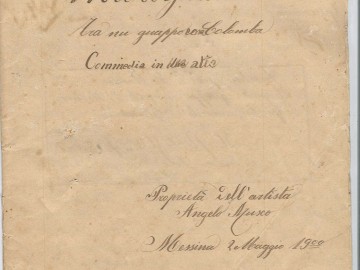 tra nu guappo e Colomba
Commedia in atto
Proprietà dell'artista
Angelo Musco
Messina 2 Maggio 1909